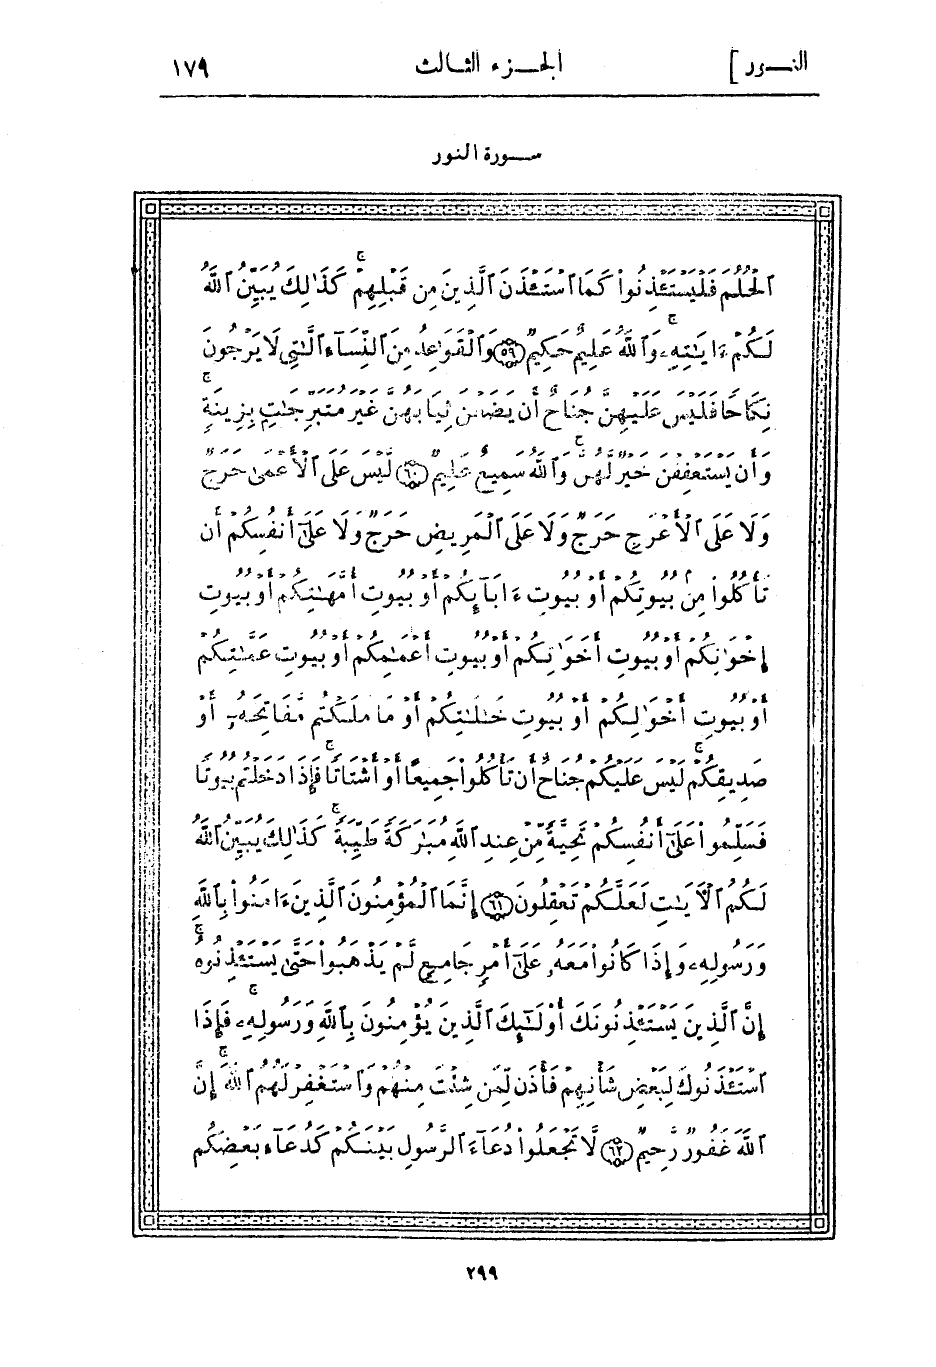 النور] الجزء الثالث ١٧٩
سورة النور
ٱلْحُلُمَ فَلْيَسْتَـْٔذِنُوا۟ كَمَا ٱسْتَـْٔذَنَ ٱلَّذِينَ مِن قَبْلِهِمْ ۚ كَذَٰلِكَ يُبَيِّنُ ٱللَّهُ
لَكُمْ ءَايَـٰتِهِۦ ۗ وَٱللَّهُ عَلِيمٌ حَكِيمٌ ﴿٥٩﴾ وَٱلْقَوَٰعِدُ مِنَ ٱلنِّسَآءِ ٱلَّـٰتِى لَا يَرْجُونَ
نِكَاحًا فَلَيْسَ عَلَيْهِنَّ جُنَاحٌ أَن يَضَعْنَ ثِيَابَهُنَّ غَيْرَ مُتَبَرِّجَـٰتٍۭ بِزِينَةٍ ۖ
وَأَن يَسْتَعْفِفْنَ خَيْرٌ لَّهُنَّ ۗ وَٱللَّهُ سَمِيعٌ عَلِيمٌ ﴿٦٠﴾ لَّيْسَ عَلَى ٱلْأَعْمَىٰ حَرَجٌ
وَلَا عَلَى ٱلْأَعْرَجِ حَرَجٌ وَلَا عَلَى ٱلْمَرِيضِ حَرَجٌ وَلَا عَلَىٰٓ أَنفُسِكُمْ أَن
تَأْكُلُوا۟ مِنۢ بُيُوتِكُمْ أَوْ بُيُوتِ ءَابَآئِكُمْ أَوْ بُيُوتِ أُمَّهَـٰتِكُمْ أَوْ بُيُوتِ
إِخْوَٰنِكُمْ أَوْ بُيُوتِ أَخَوَٰتِكُمْ أَوْ بُيُوتِ أَعْمَـٰمِكُمْ أَوْ بُيُوتِ عَمَّـٰتِكُمْ
أَوْ بُيُوتِ أَخْوَٰلِكُمْ أَوْ بُيُوتِ خَـٰلَـٰتِكُمْ أَوْ مَا مَلَكْتُم مَّفَاتِحَهُۥٓ أَوْ
صَدِيقِكُمْ ۚ لَيْسَ عَلَيْكُمْ جُنَاحٌ أَن تَأْكُلُوا۟ جَمِيعًا أَوْ أَشْتَاتًا ۚ فَإِذَا دَخَلْتُم بُيُوتًا
فَسَلِّمُوا۟ عَلَىٰٓ أَنفُسِكُمْ تَحِيَّةً مِّنْ عِندِ ٱللَّهِ مُبَـٰرَكَةً طَيِّبَةً ۚ كَذَٰلِكَ يُبَيِّنُ ٱللَّهُ
لَكُمُ ٱلْـَٔايَـٰتِ لَعَلَّكُمْ تَعْقِلُونَ ﴿٦١﴾ إِنَّمَا ٱلْمُؤْمِنُونَ ٱلَّذِينَ ءَامَنُوا۟ بِٱللَّهِ
وَرَسُولِهِۦ وَإِذَا كَانُوا۟ مَعَهُۥ عَلَىٰٓ أَمْرٍ جَامِعٍ لَّمْ يَذْهَبُوا۟ حَتَّىٰ يَسْتَـْٔذِنُوهُ ۚ
إِنَّ ٱلَّذِينَ يَسْتَـْٔذِنُونَكَ أُو۟لَـٰٓئِكَ ٱلَّذِينَ يُؤْمِنُونَ بِٱللَّهِ وَرَسُولِهِۦ ۚ فَإِذَا
ٱسْتَـْٔذَنُوكَ لِبَعْضِ شَأْنِهِمْ فَأْذَن لِّمَن شِئْتَ مِنْهُمْ وَٱسْتَغْفِرْ لَهُمُ ٱللَّهَ ۚ إِنَّ
ٱللَّهَ غَفُورٌ رَّحِيمٌ ﴿٦٢﴾ لَّا تَجْعَلُوا۟ دُعَآءَ ٱلرَّسُولِ بَيْنَكُمْ كَدُعَآءِ بَعْضِكُم
٢٩٩